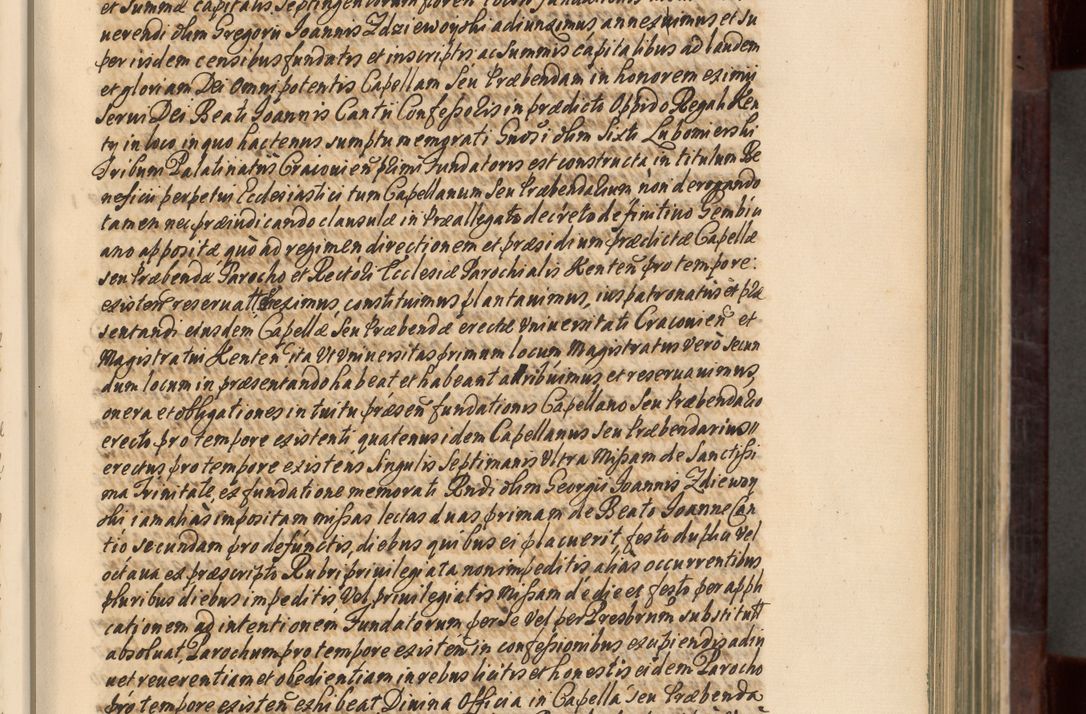 et Summæ capitalis Septingentorum floren
uerendi olim Gregorii Joannis Zdziewoyski adiunximus annexuimus et su
per iisdem censibus fundatis et inscriptis ac Summis capitalibus ad laudem
et gloriam Dei Omnipotentis Capellam Seu Præbendam in honorem eximij
Serui Dei Beati Joannis Cantii Confessoris in prædicto Oppido Regali Ken
ty in loco in quo hactenus sumptu memorati Gnosi olim Sixti Lubomierski
Tribuni Palatinatus Cracouien primi Fundatoris est constructa in titulum Be
neficii perpetui Ecclesiastici tum Capellanum Seu Præbendarium non derogando
tamen nec præiudicando clausulæ in Præallegato decreto definitiuo Gembic
ano appositæ quo ad regimen directionem et præsidium prædictæ Capellæ
seu Præbendæ Parocho et Rectori Ecclesiæ Parochialis Kenten pro tempore
existen reseruat Ereximus, constituimus plantauimus, ius patronatus et præ
sentandi eiusdem Capellæ Seu Præbendæ erectæ Vniuersitati Cracouien et
Magistratui Kenten ita Vt Vniuersitas primum locum Magistratus Vero secun
dum locum in præsentando habeat et habeant attribuimus et reseruauimus,
onera et obligationes intuitu præsen fundationis Capellano Seu Præbendario
erecto pro tempore existenti quatenus idem Capellanus Seu Præbendarius
erectus pro tempore existens Singulis Septimanis Ultra Missam de Sanctissi
ma Trinitate, ex fundatione memorati Rndi olim Georgii Joannis Zdiewoy
ski iam alias impositam missas lectas duas primam de Beato Joanne Can
tio secundam pro defunctis, diebus quibus ei placuerit, festo duplici Vel
octaua ex præscripto Rubri priuilegiata non impeditis alias occurrentibus
pluribus diebus impeditis Vel priuilegiatis Missam de die et festo per appli
cationem ad intentionem Fundatorum per se Vel per Presbrum substitutt
absoluat, Parochum pro tempore existen in confessionibus excipiendis adiu
uet reuerentiam et obedientiam in rebus licitis et honestis eidem Parocho
pro tempore existen exhibeat Diuina Officia in Capella Seu Præbenda